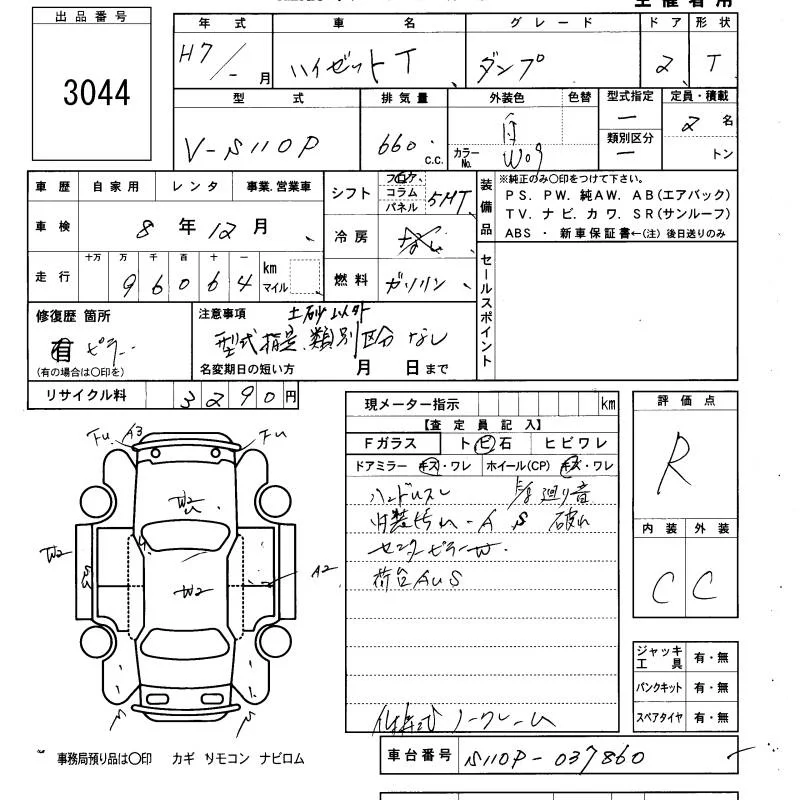 主催者用
出品番号
3044
年式 車名 グレード ドア 形状
H7/- 月 ハイゼットT ダンプ 2 T
型式 排気量 外装色 色替 型式指定 定員・積載
V-S110P 660 c.c. 白 ー 2 名
カラーNo. W09 類別区分 ー トン
車歴 自家用 レンタ 事業.営業車
シフト フロア コラム パネル 5MT
装備品
※純正のみ〇印をつけて下さい。
PS. PW. 純AW. AB(エアバック)
TV. ナビ. カワ. SR(サンルーフ)
ABS ・ 新車保証書←(注) 後日送りのみ
車検 8年12月
冷房 なし
走行 十万 万 千 百 十 一 km マイル
96064
燃料 ガソリン
セールスポイント
修復歴 箇所
有 ピラー
(有の場合は〇印を)
注意事項 土砂以外
型式指定.類別区分なし
名変期日の短い方 月 日まで
リサイクル料 3290円
現メーター指示 km
【査定員記入】
Fガラス トビ石 ヒビワレ
ドアミラー キズ・ワレ ホイール(CP) キズ・ワレ
ハンドルスレ 廻り音
内装汚れ-A S 破れ
センターピラーW.
荷台AUS
ノークレーム
評価点
R
内装 外装
C C
Fu A3 Fu
W2
U
W2
W2
W2
A2
ジャッキ工具 有・無
パンクキット 有・無
スペアタイヤ 有・無
事務局預り品は〇印 カギ リモコン ナビロム
車台番号 S110P-037860